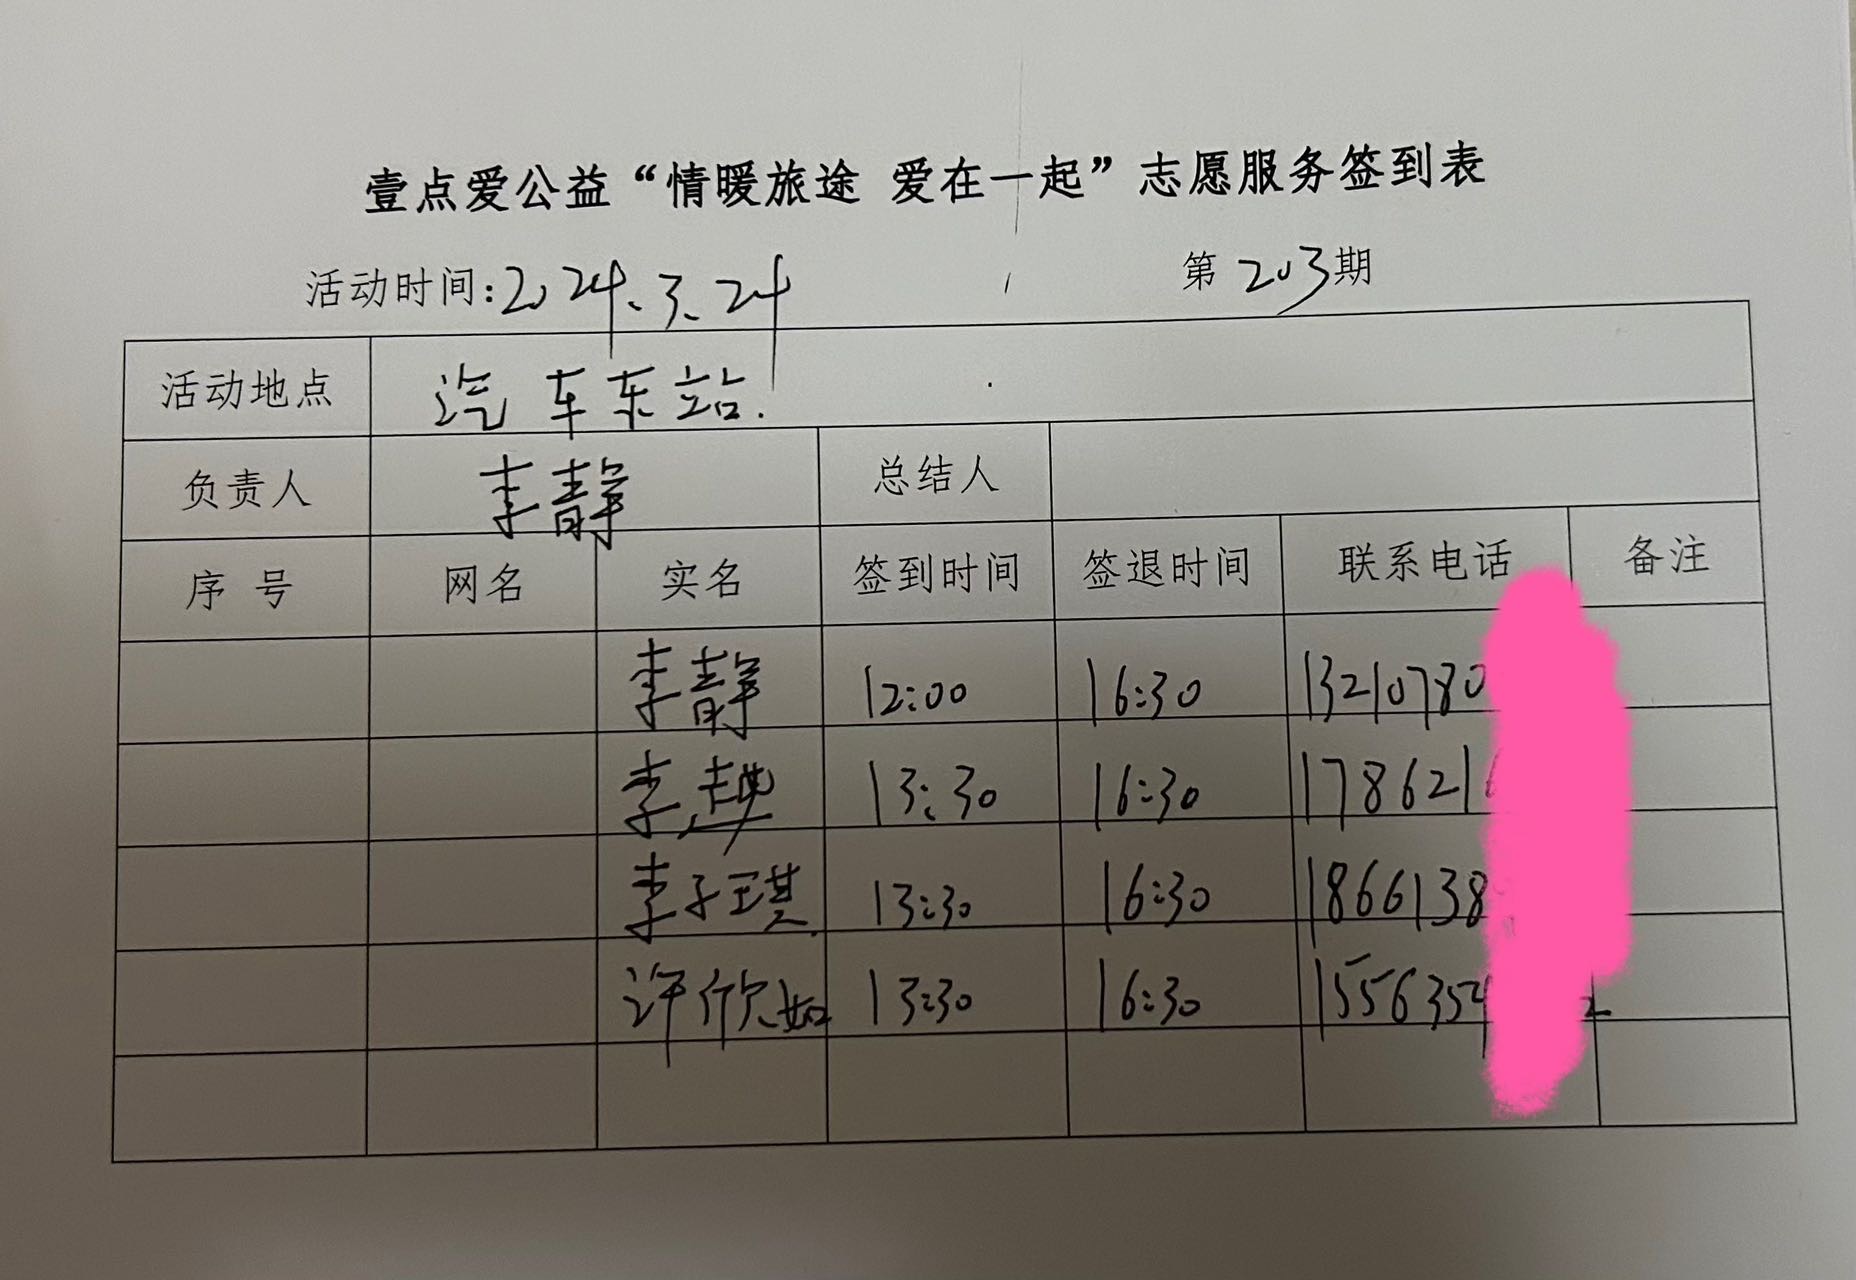 壹点爱公益“情暖旅途 爱在一起”志愿服务签到表
活动时间:2024.3.24 第203期
活动地点 汽车东站.
负责人 李静 总结人
序号 网名 实名 签到时间 签退时间 联系电话 备注
李静 12:00 16:30 13210780
李越 13:30 16:30 1786216
李子琪 13:30 16:30 1866138
许欣如 13:30 16:30 1556354 2